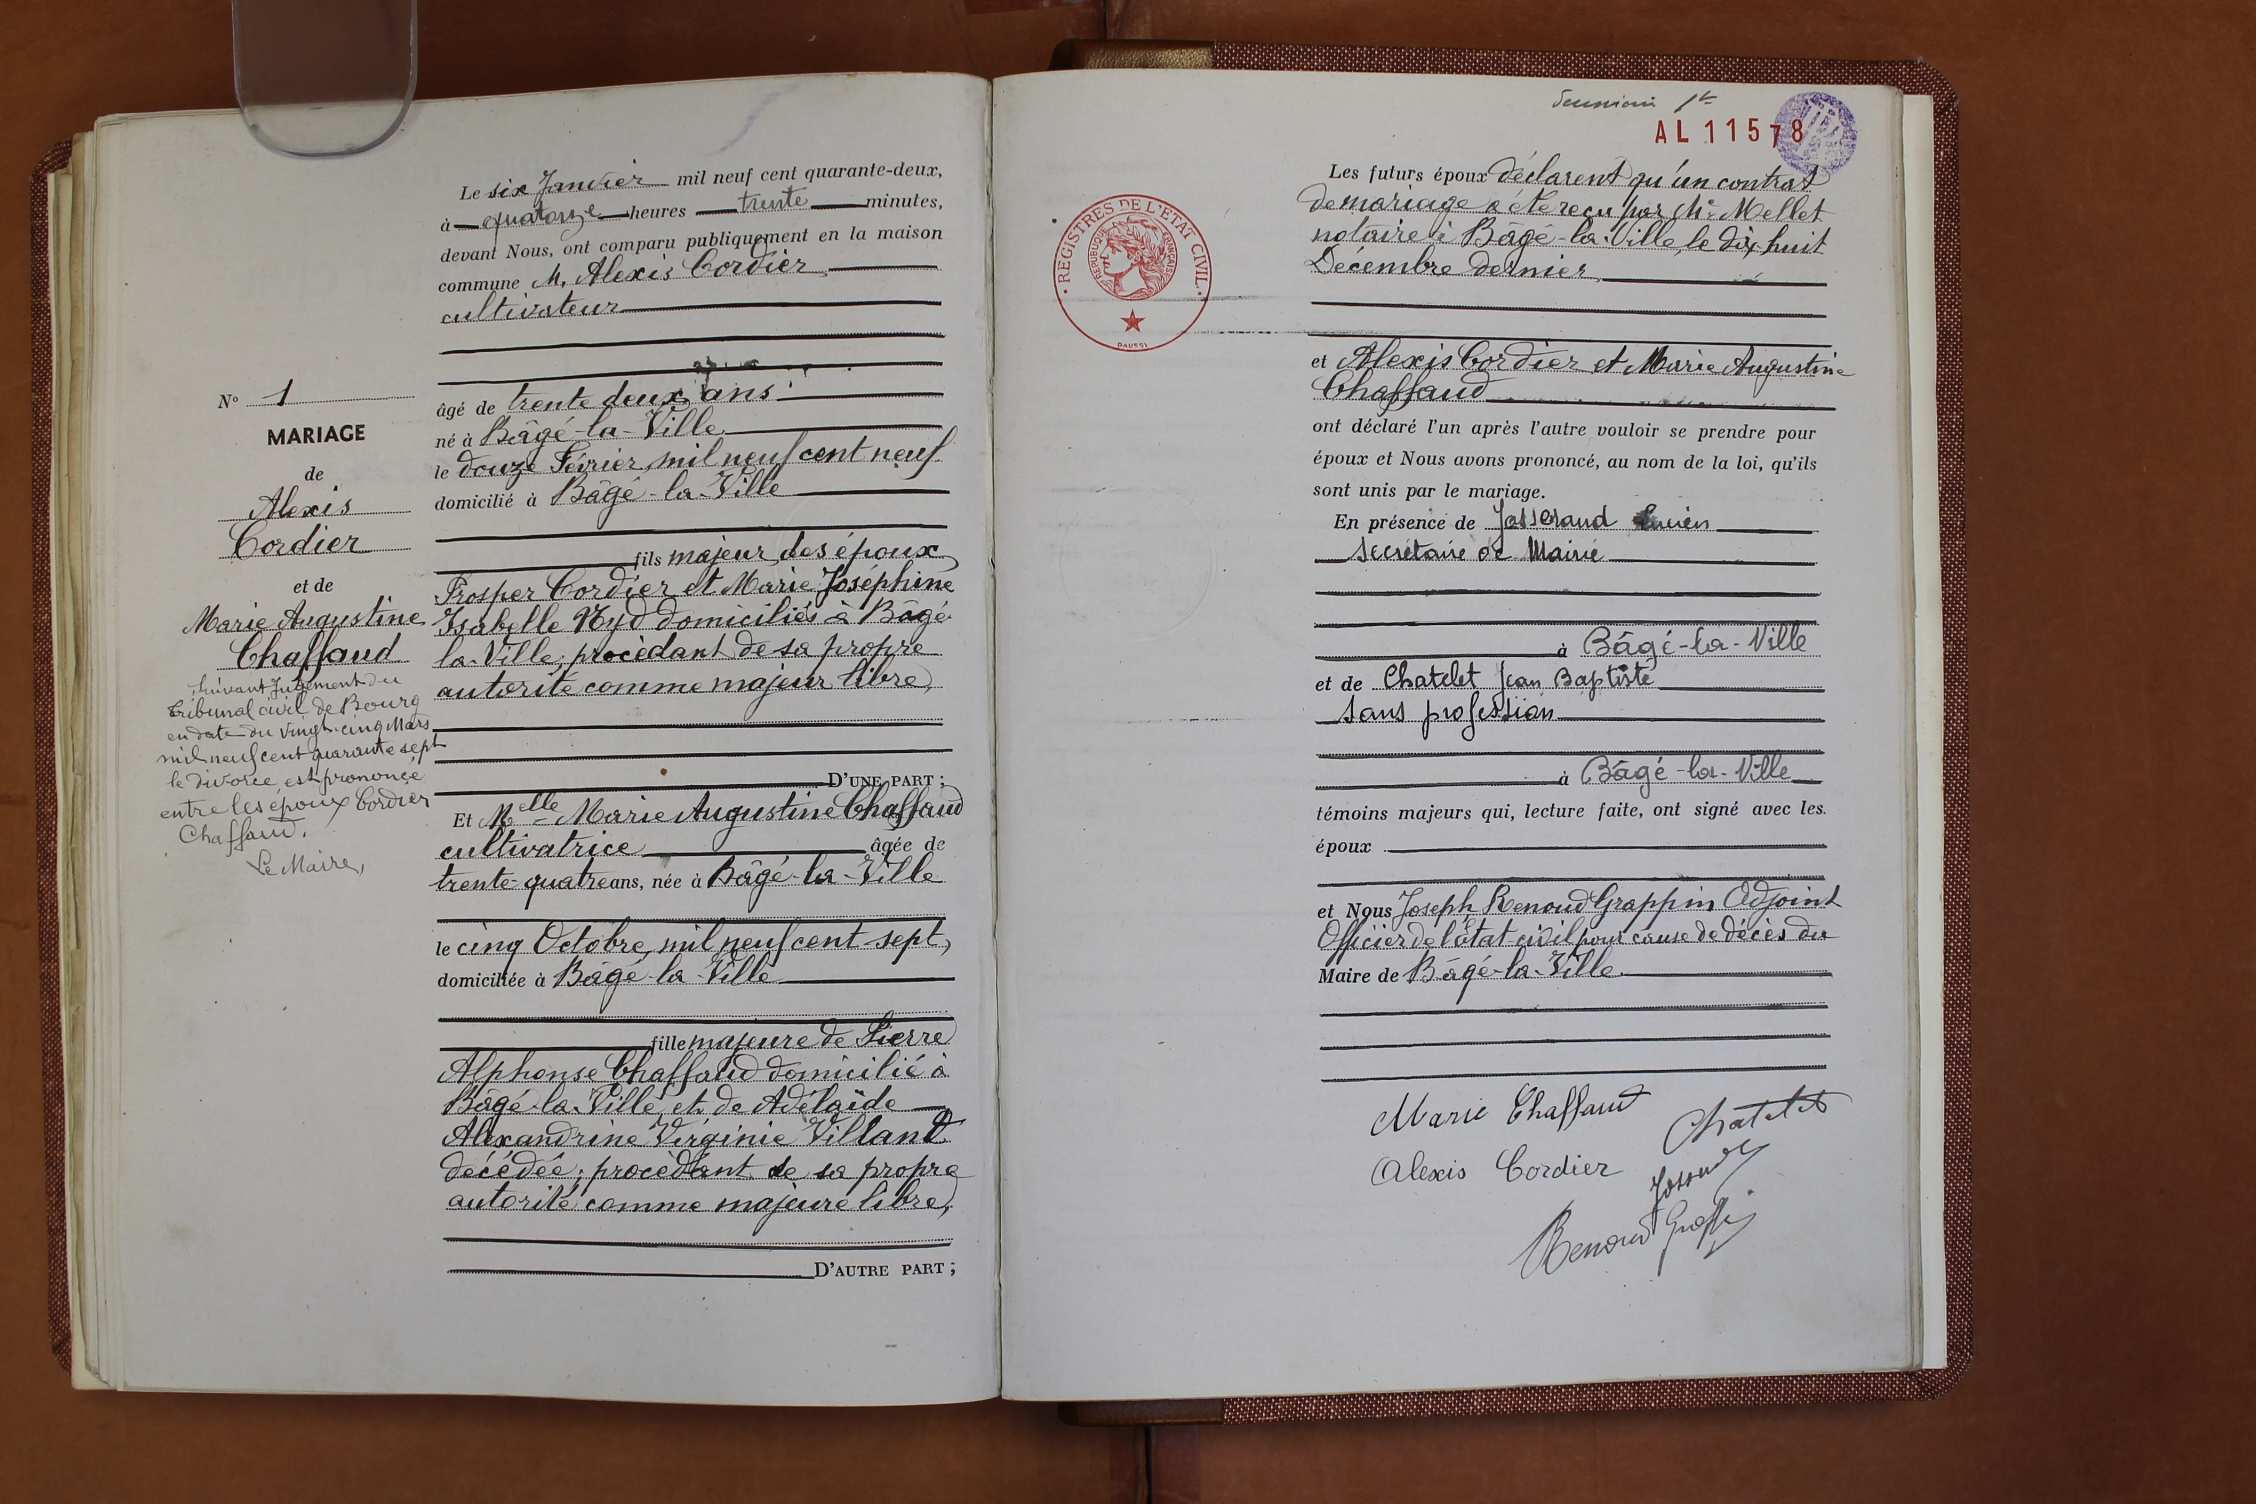 Le six Janvier mil neuf cent quarante-deux,
à quatorze heures trente minutes,
devant Nous, ont comparu publiquement en la maison
commune M. Alexis Cordier
cultivateur
âgé de trente deux ans
né à Bâgé-la-Ville
le douze Février mil neuf cent neuf
domicilié à Bâgé-la-Ville
fils majeur des époux
Prosper Cordier et Marie Joséphine
Isabelle Nyd domiciliés à Bâgé-
la-Ville, procédant de sa propre
autorité comme majeur libre,
D'UNE PART ;
Et Melle Marie Augustine Chaffaud
cultivatrice âgée de
trente-quatre ans, née à Bâgé-la-Ville
le cinq Octobre mil neuf cent sept,
domiciliée à Bâgé-la-Ville
fille majeure de Pierre
Alphonse Chaffaud domicilié à
Bâgé-la-Ville, et de Adélaïde
Alexandrine Virginie Villand
décédée ; procédant de sa propre
autorité comme majeure libre,
D'AUTRE PART ;
N° 1
MARIAGE
de
Alexis
Cordier
et de
Marie Augustine
Chaffaud
Suivant Jugement du
tribunal civil de Bourg
en date du vingt-cinq Mars
mil neuf cent quarante sept
le divorce est prononcé
entre les époux Cordier
Chaffaud.
Le Maire,
AL 11578
REGISTRES DE L'ETAT CIVIL
REPUBLIQUE FRANÇAISE
Les futurs époux déclarent qu'un contrat
de mariage a été reçu par Me Mellet
notaire à Bâgé-la-Ville, le dix huit
Décembre dernier
et Alexis Cordier et Marie Augustine
Chaffaud
ont déclaré l'un après l'autre vouloir se prendre pour
époux et Nous avons prononcé, au nom de la loi, qu'ils
sont unis par le mariage.
En présence de Josserand Lucien
secrétaire de Mairie
à Bâgé-la-Ville
et de Chatelet Jean Baptiste
sans profession
à Bâgé-la-Ville
témoins majeurs qui, lecture faite, ont signé avec les
époux
et Nous Joseph Renoud Grappin Adjoint
Officier de l'état-civil pour cause de décès du
Maire de Bâgé-la-Ville
Marie Chaffaud
Chatelet
Alexis Cordier
Renoud